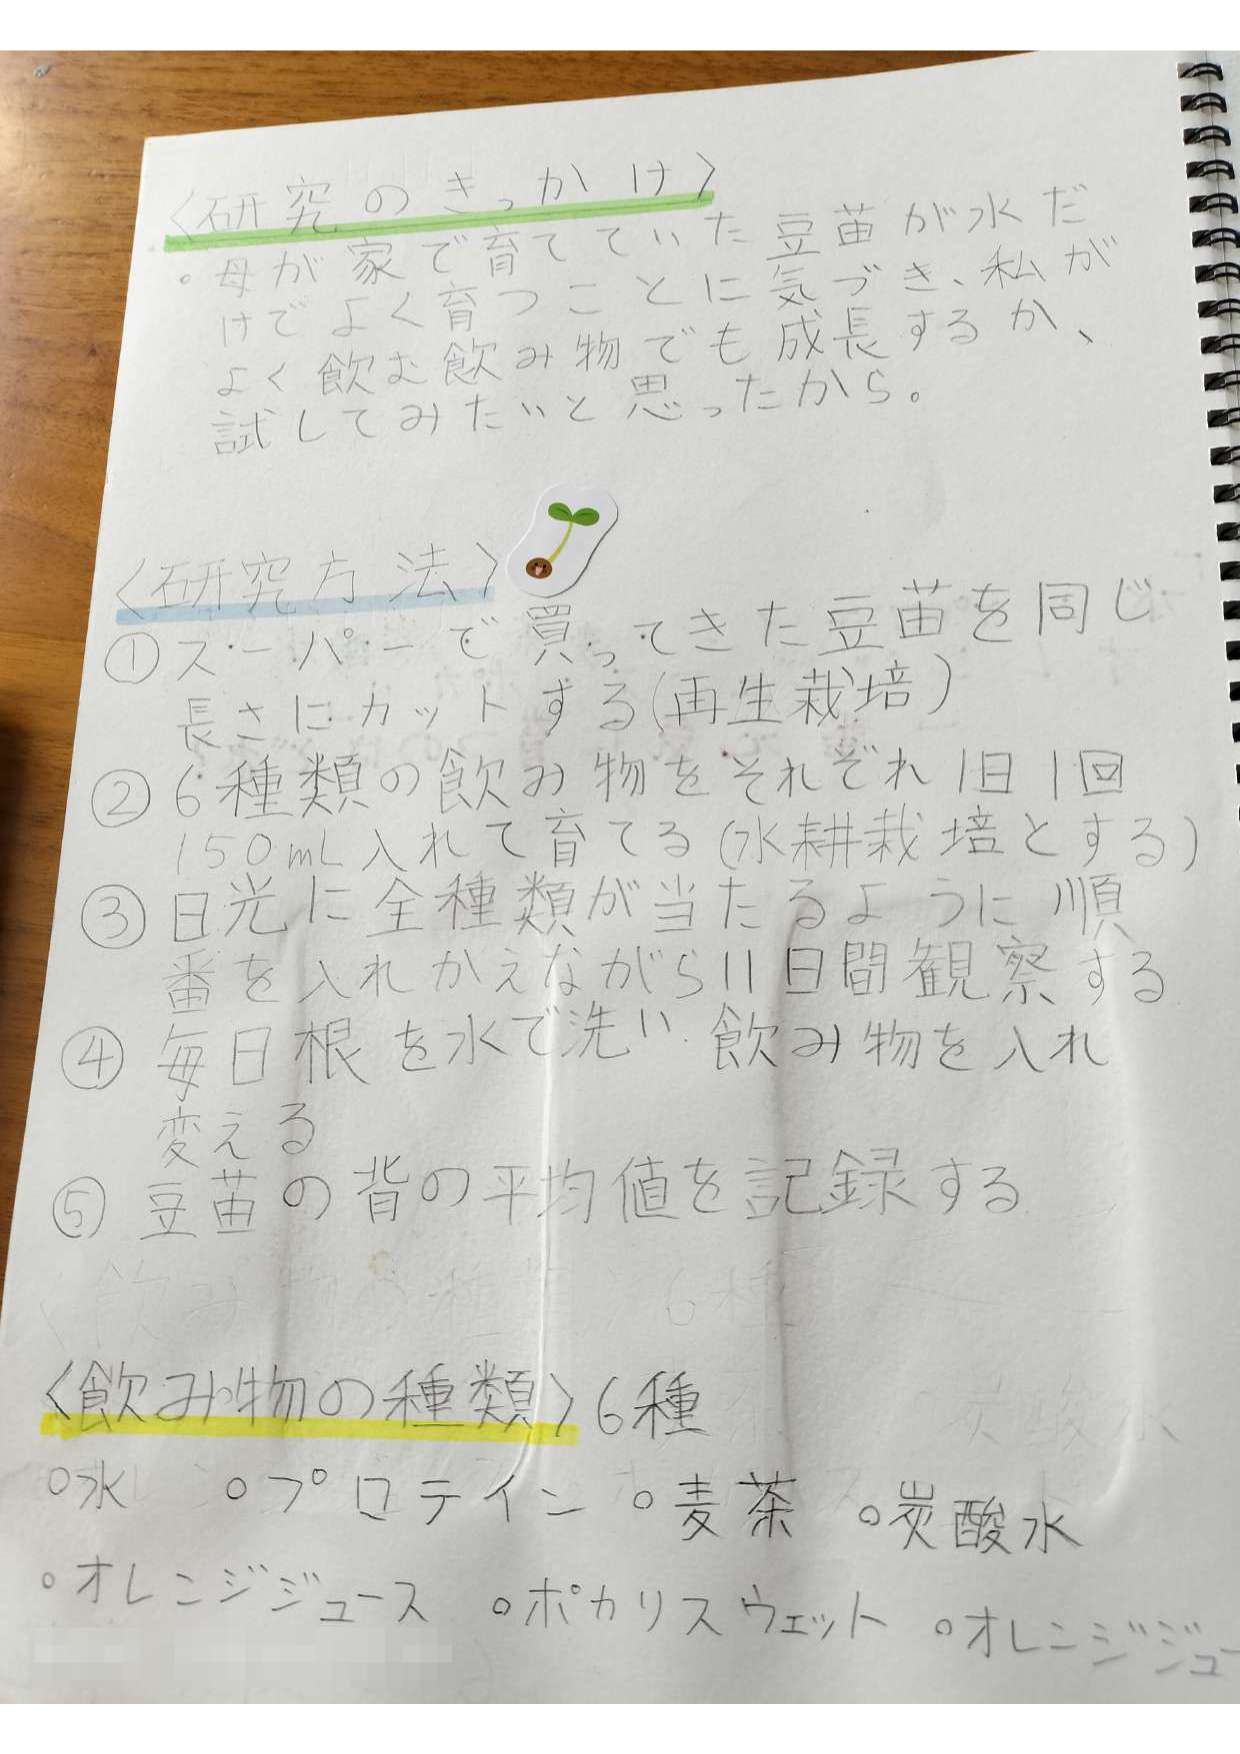 〈研究のきっかけ〉
◦母が家で育てていた豆苗が水だ
けでよく育つことに気づき、私が
よく飲む飲み物でも成長するか、
試してみたいと思ったから。
〈研究方法〉
①スーパーで買ってきた豆苗を同じ
長さにカットする(再生栽培)
②6種類の飲み物をそれぞれ1日1回
150mL入れて育てる(水耕栽培とする)
③日光に全種類が当たるように順
番を入れかえながら11日間観察する
④毎日根を水で洗い飲み物を入れ
変える
⑤豆苗の背の平均値を記録する
〈飲み物の種類〉6種
◦水 ◦プロテイン ◦麦茶 ◦炭酸水
◦オレンジジュース ◦ポカリスウェット ◦オレンジジュー